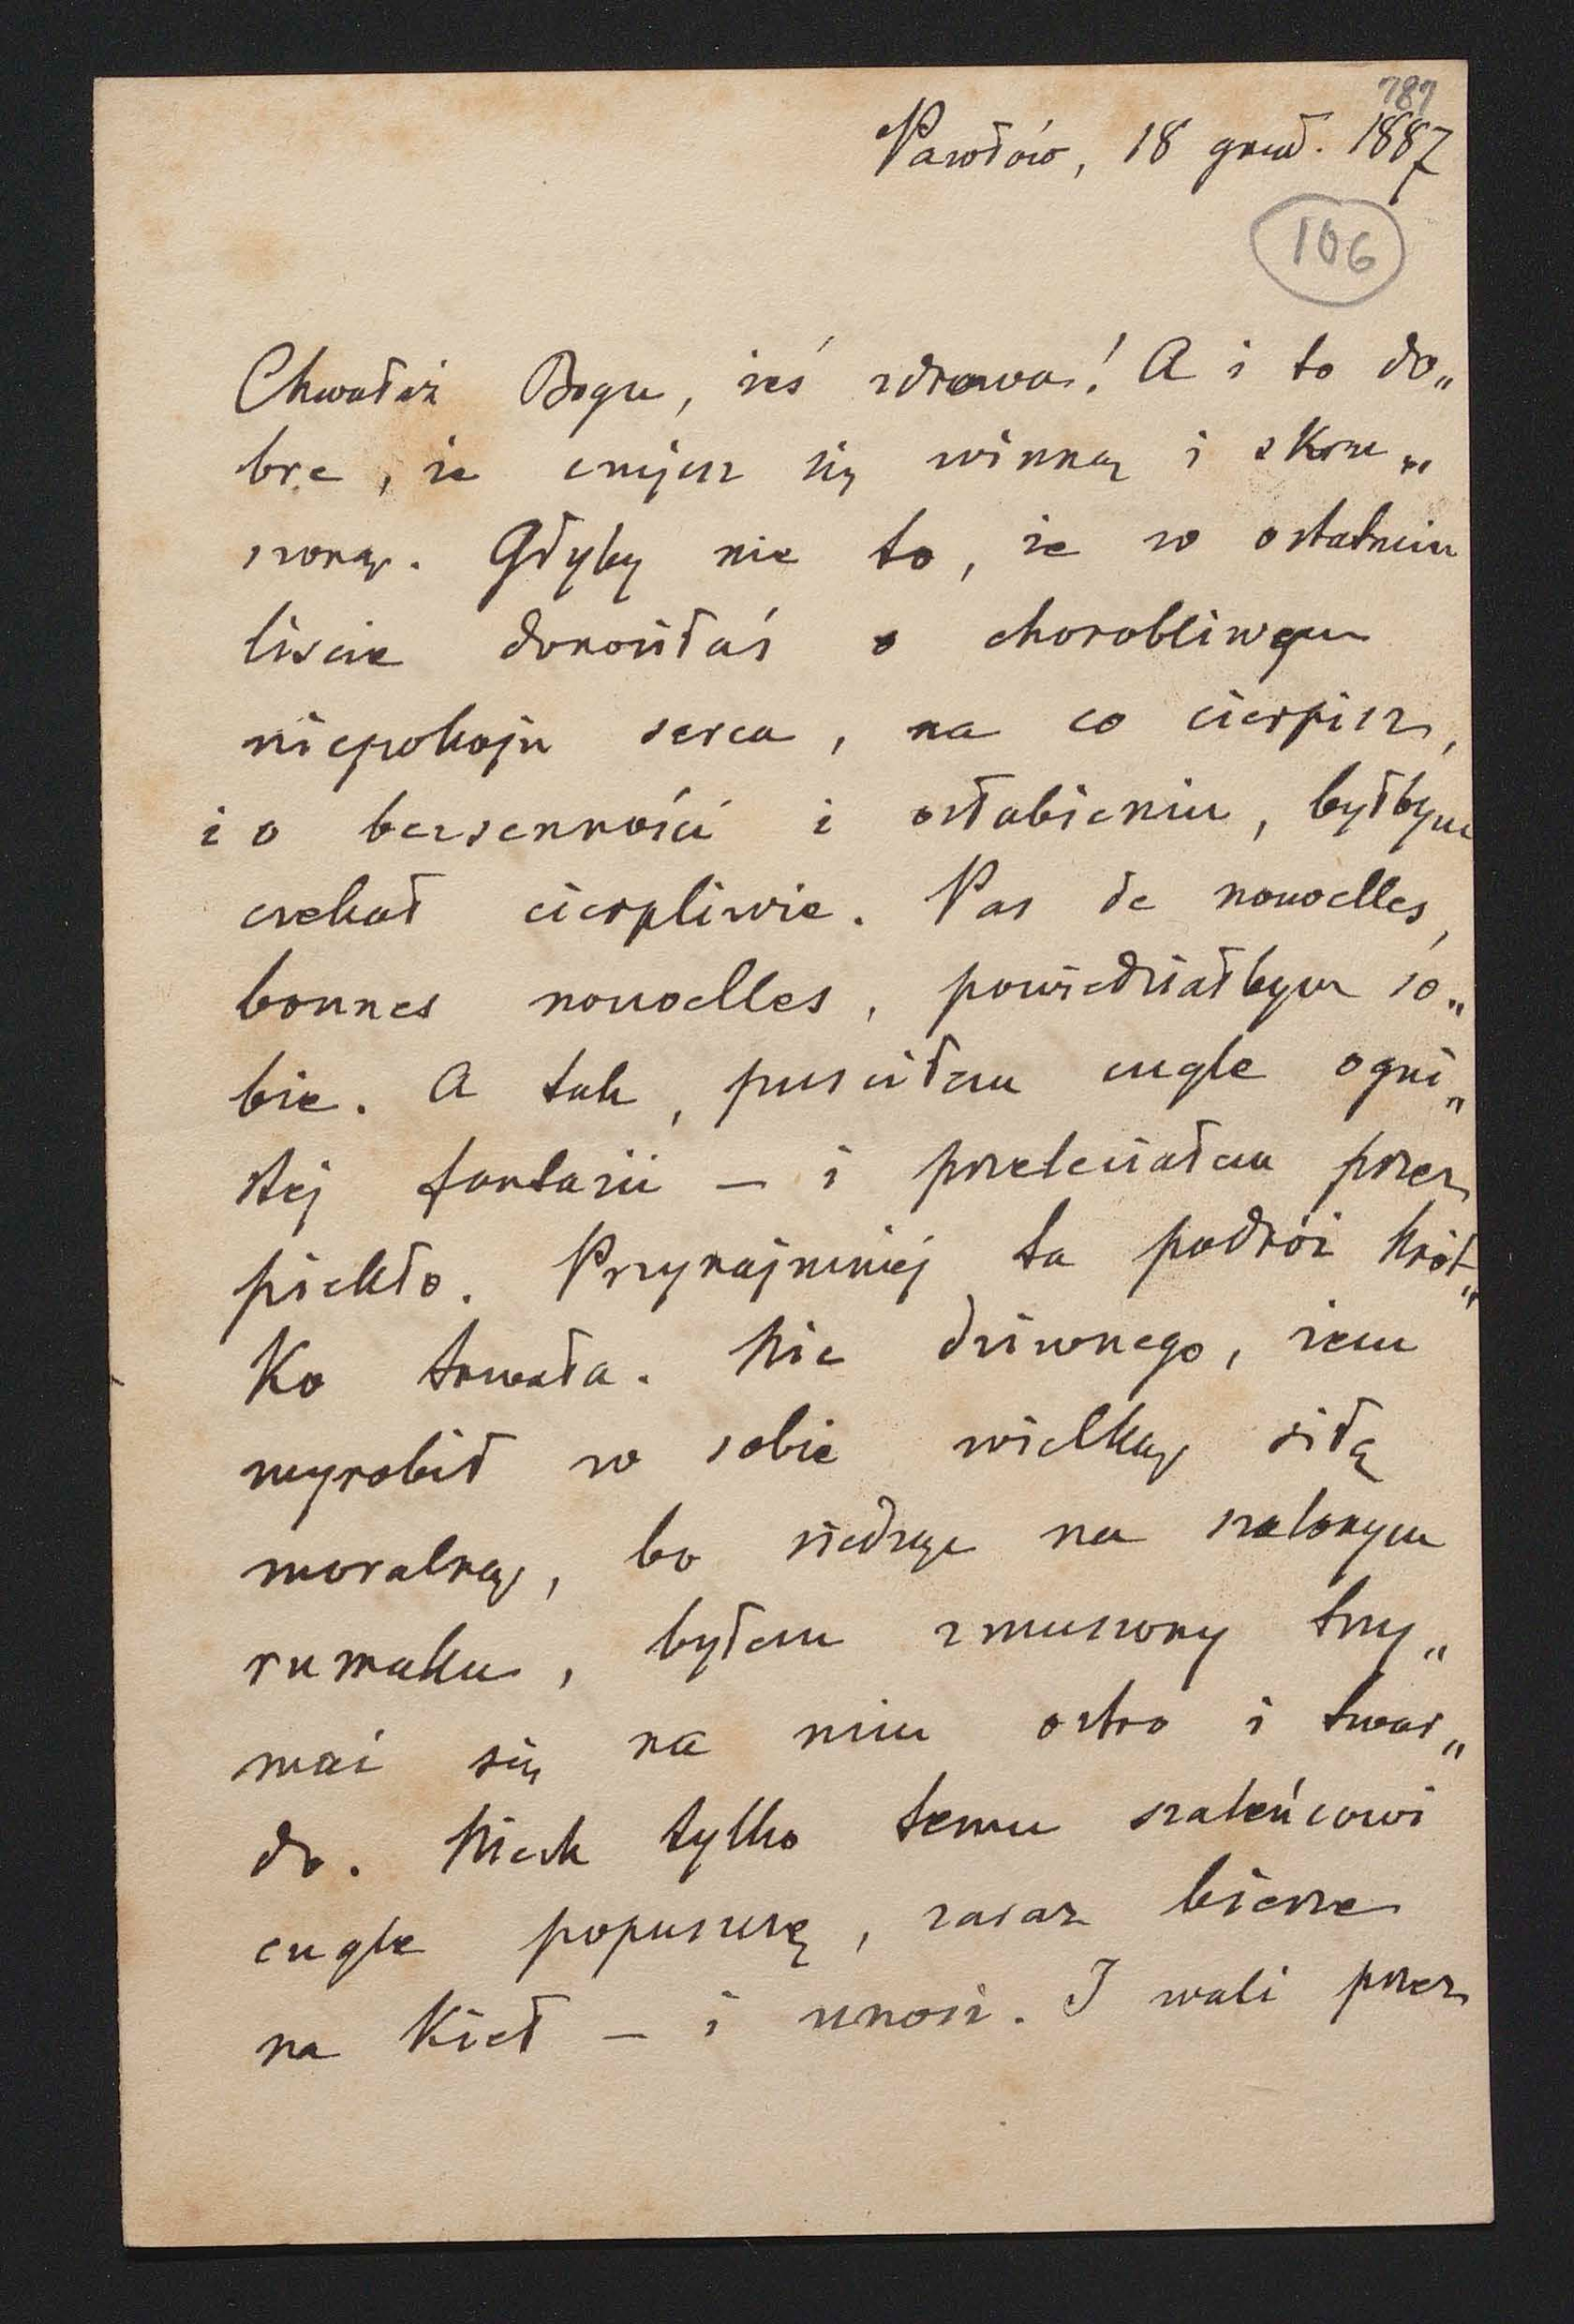 787
Pawłów, 18 grud. 1887
106
Chwałaż Bogu, żeś zdrowa! A i to do„
bre, że czujesz się winną i skru„
szoną. Gdyby nie to, że w ostatnim
liście donosiłaś o chorobliwym
niepokoju serca, na co cierpisz,
i o bezsenności i osłabieniu, byłbym
czekał cierpliwie. Pas de nouvelles,
bonnes nouvelles, powiedziałbym so„
bie. A tak, puściłem cugle ogni„
stéj fantazii – i przeleciałem przez
piekło. Przynajmniéj ta podróż krót„
ko trwała. Nic dziwnego, żem
wyrobił w sobie wielką siłę
moralną, bo siedząc na szalonym
rumaku, byłem zmuszony trzy„
mać się na nim ostro i twar„
do. Niech tylko temu szaleńcowi
cugle popuszczę, zaraz bierze
na kieł – i unosi. I wali przez